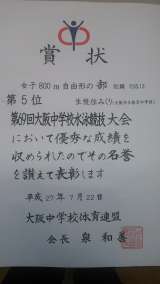 賞状
女子800m自由形の部
第5位
大阪中学校水泳競技大会
において優秀な成績を
収められたのでその名誉
を讃えて表彰します
平成27年7月22日
大阪中学校体育連盟
会長 泉 和